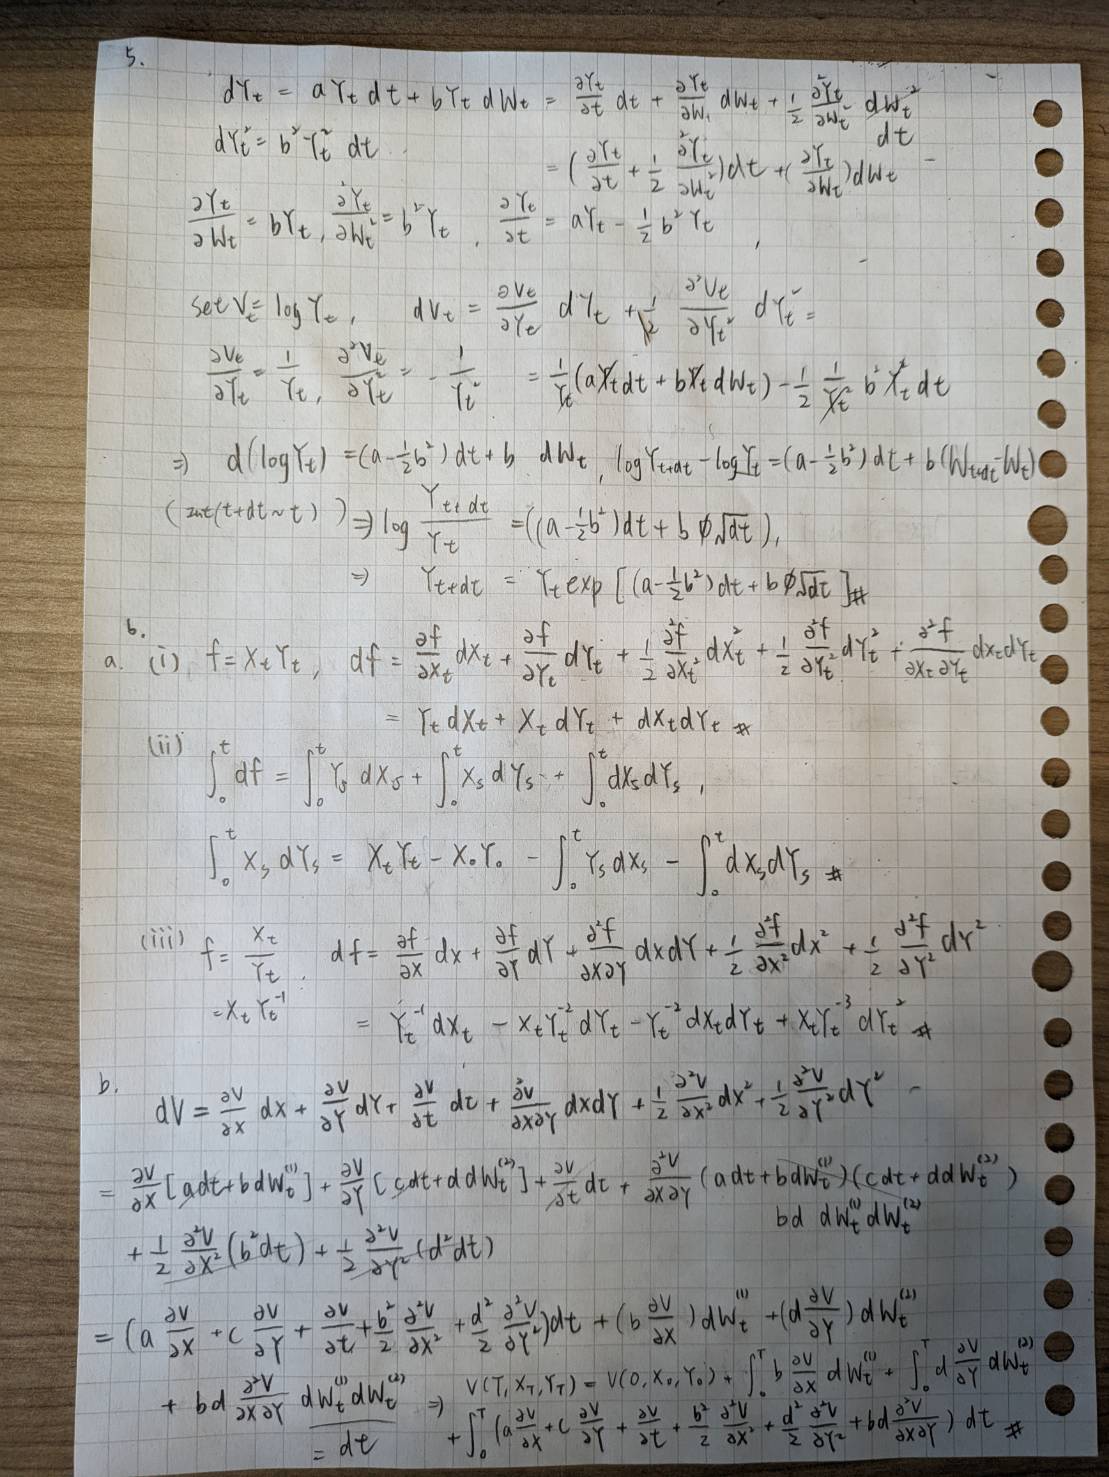 5.
dY_t = aY_t dt + bY_t dW_t = ∂Y_t/∂t dt + ∂Y_t/∂W_t dW_t + 1/2 ∂²Y_t/∂W_t² dW_t²
dt
dY_t² = b² Y_t² dt
= (∂Y_t/∂t + 1/2 ∂²Y_t/∂W_t²)dt + (∂Y_t/∂W_t)dW_t
∂Y_t/∂W_t = bY_t, ∂²Y_t/∂W_t² = b²Y_t, ∂Y_t/∂t = aY_t - 1/2 b² Y_t
set V_t = log Y_t, dV_t = ∂V_t/∂Y_t dY_t + 1/2 ∂²V_t/∂Y_t² dY_t² =
∂V_t/∂Y_t = 1/Y_t, ∂²V_t/∂Y_t² = - 1/Y_t² = 1/Y_t (aY_t dt + bY_t dW_t) - 1/2 1/Y_t² b² Y_t² dt
⇒ d(log Y_t) = (a - 1/2 b²)dt + b dW_t, log Y_{t+dt} - log Y_t = (a - 1/2 b²)dt + b(W_{t+dt} - W_t)
(int(t+dt ~ t)) ⇒ log Y_{t+dt}/Y_t = ((a - 1/2 b²)dt + b ϕ√dt),
⇒ Y_{t+dt} = Y_t exp[(a - 1/2 b²)dt + b ϕ√dt] #
6.
a. (i) f = X_t Y_t, df = ∂f/∂X_t dX_t + ∂f/∂Y_t dY_t + 1/2 ∂²f/∂X_t² dX_t² + 1/2 ∂²f/∂Y_t² dY_t² + ∂²f/∂X_t∂Y_t dX_t dY_t
= Y_t dX_t + X_t dY_t + dX_t dY_t #
(ii)
∫₀^t df = ∫₀^t Y_s dX_s + ∫₀^t X_s dY_s + ∫₀^t dX_s dY_s,
∫₀^t X_s dY_s = X_t Y_t - X_0 Y_0 - ∫₀^t Y_s dX_s - ∫₀^t dX_s dY_s #
(iii) f = X_t/Y_t df = ∂f/∂X dX + ∂f/∂Y dY + ∂²f/∂X∂Y dX dY + 1/2 ∂²f/∂X² dX² + 1/2 ∂²f/∂Y² dY²
= X_t Y_t⁻¹ = Y_t⁻¹ dX_t - X_t Y_t⁻² dY_t - Y_t⁻² dX_t dY_t + X_t Y_t⁻³ dY_t² #
b.
dV = ∂V/∂X dX + ∂V/∂Y dY + ∂V/∂t dt + ∂²V/∂X∂Y dX dY + 1/2 ∂²V/∂X² dX² + 1/2 ∂²V/∂Y² dY²
= ∂V/∂X [adt + bdW_t^(1)] + ∂V/∂Y [cdt + ddW_t^(2)] + ∂V/∂t dt + ∂²V/∂X∂Y (adt + bdW_t^(1))(cdt + ddW_t^(2))
bd dW_t^(1) dW_t^(2)
+ 1/2 ∂²V/∂X² (b²dt) + 1/2 ∂²V/∂Y² (d²dt)
= (a ∂V/∂X + c ∂V/∂Y + ∂V/∂t + b²/2 ∂²V/∂X² + d²/2 ∂²V/∂Y²)dt + (b ∂V/∂X) dW_t^(1) + (d ∂V/∂Y) dW_t^(2)
+ bd ∂²V/∂X∂Y dW_t^(1) dW_t^(2) ⇒ V(T, X_T, Y_T) = V(0, X_0, Y_0) + ∫₀^T b ∂V/∂X dW_t^(1) + ∫₀^T d ∂V/∂Y dW_t^(2)
= dt + ∫₀^T (a ∂V/∂X + c ∂V/∂Y + ∂V/∂t + b²/2 ∂²V/∂X² + d²/2 ∂²V/∂Y² + bd ∂²V/∂X∂Y) dt #